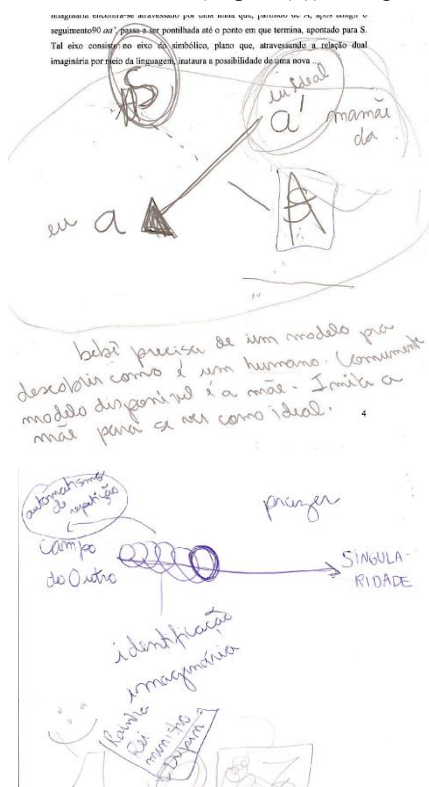 imaginária encontra-se atravessado por uma linha que, partindo de A, após atingir o
seguimento90 aa', passa a ser pontilhada até o ponto em que termina, apontado para S.
Tal eixo consiste no eixo do simbólico, plano que, atravessando a relação dual
imaginária por meio da linguagem, instaura a possibilidade de uma nova ...
S
eu ideal
a'
mamãe
da
eu a
A
bebê precisa de um modelo pra
descobrir como é um humano. Comumente
modelo disponível é a mãe. Imita a
mãe para se ver como ideal.
4
automatismo
de repetição
prazer
Campo
do Outro
SINGULA-
RIDADE
identificação
imaginária
Rainha
Rei
ministro
Dupin